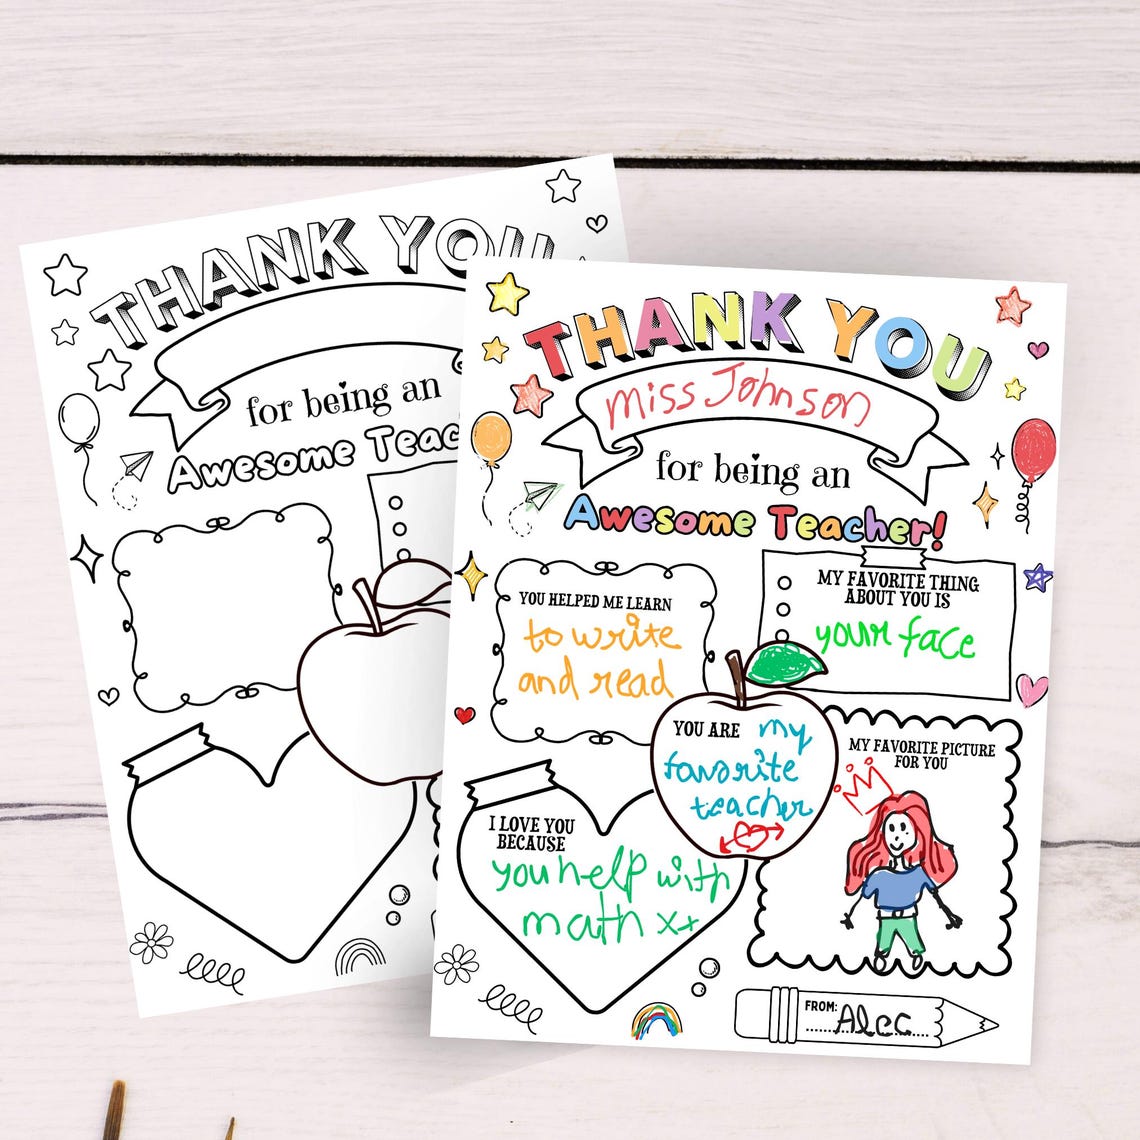 THANK YOU
for being an
Awesome Teac
THANK YOU
Miss Johnson
for being an
Awesome Teacher!
YOU HELPED ME LEARN
to write
and read
MY FAVORITE THING
ABOUT YOU IS
your face
YOU ARE my
favorite
teacher
MY FAVORITE PICTURE
FOR YOU
I LOVE YOU
BECAUSE
you help with
math x+
FROM: Alec